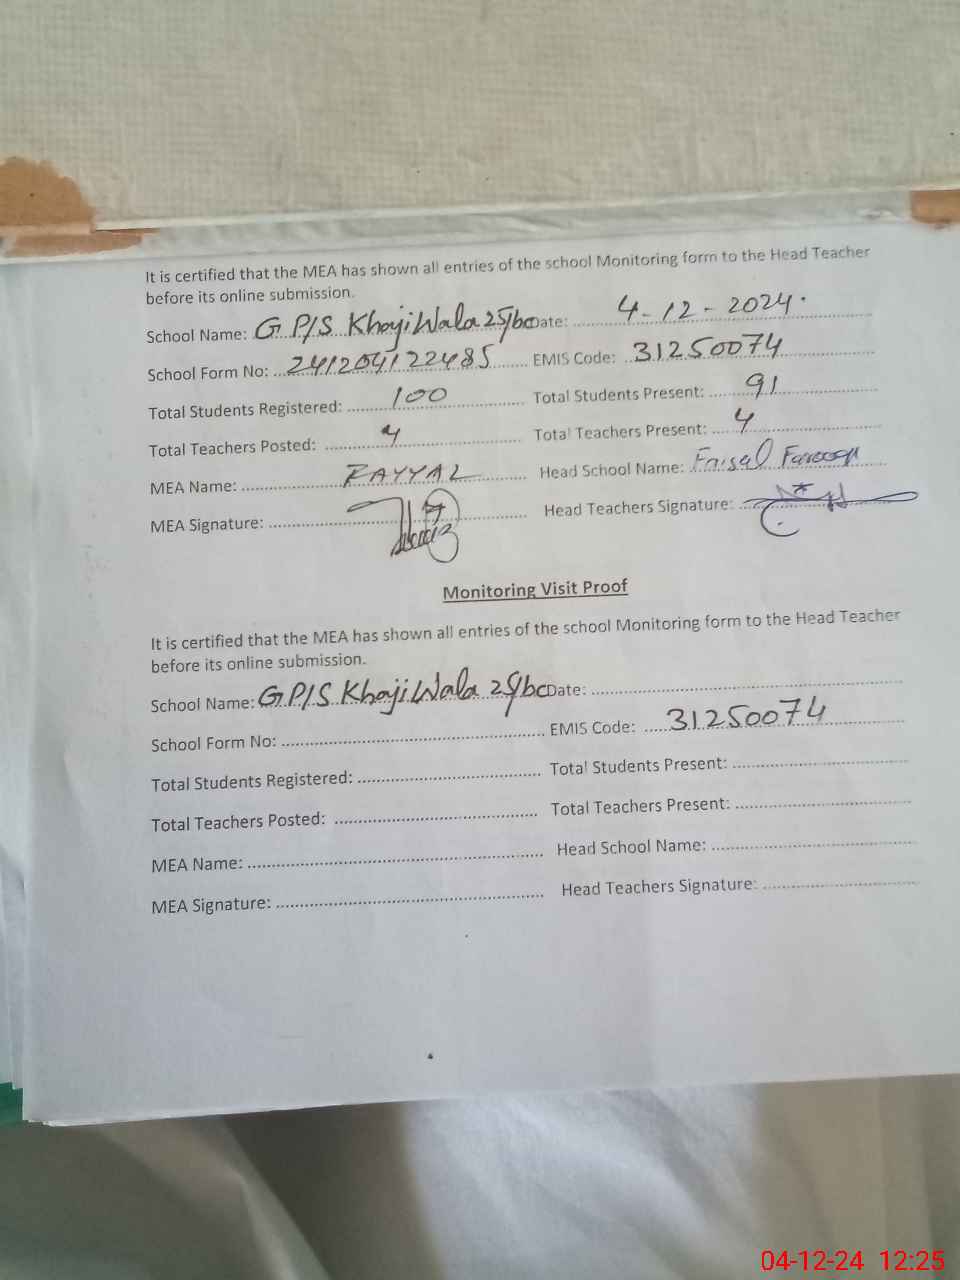 It is certified that the MEA has shown all entries of the school Monitoring form to the Head Teacher
before its online submission.
School Name: G P/S Khaji Wala 25/bc Date: 4-12-2024.
School Form No: 241204122485 EMIS Code: 31250074
Total Students Registered: 100 Total Students Present: 91
Total Teachers Posted: 4 Total Teachers Present: 4
MEA Name: RAYYAL Head School Name: Faisal Farooq
MEA Signature: Head Teachers Signature:
Monitoring Visit Proof
It is certified that the MEA has shown all entries of the school Monitoring form to the Head Teacher
before its online submission.
School Name: G P/S Khaji Wala 25/bc Date:
School Form No: EMIS Code: 31250074
Total Students Registered: Total Students Present:
Total Teachers Posted: Total Teachers Present:
MEA Name: Head School Name:
MEA Signature: Head Teachers Signature:
04-12-24 12:25